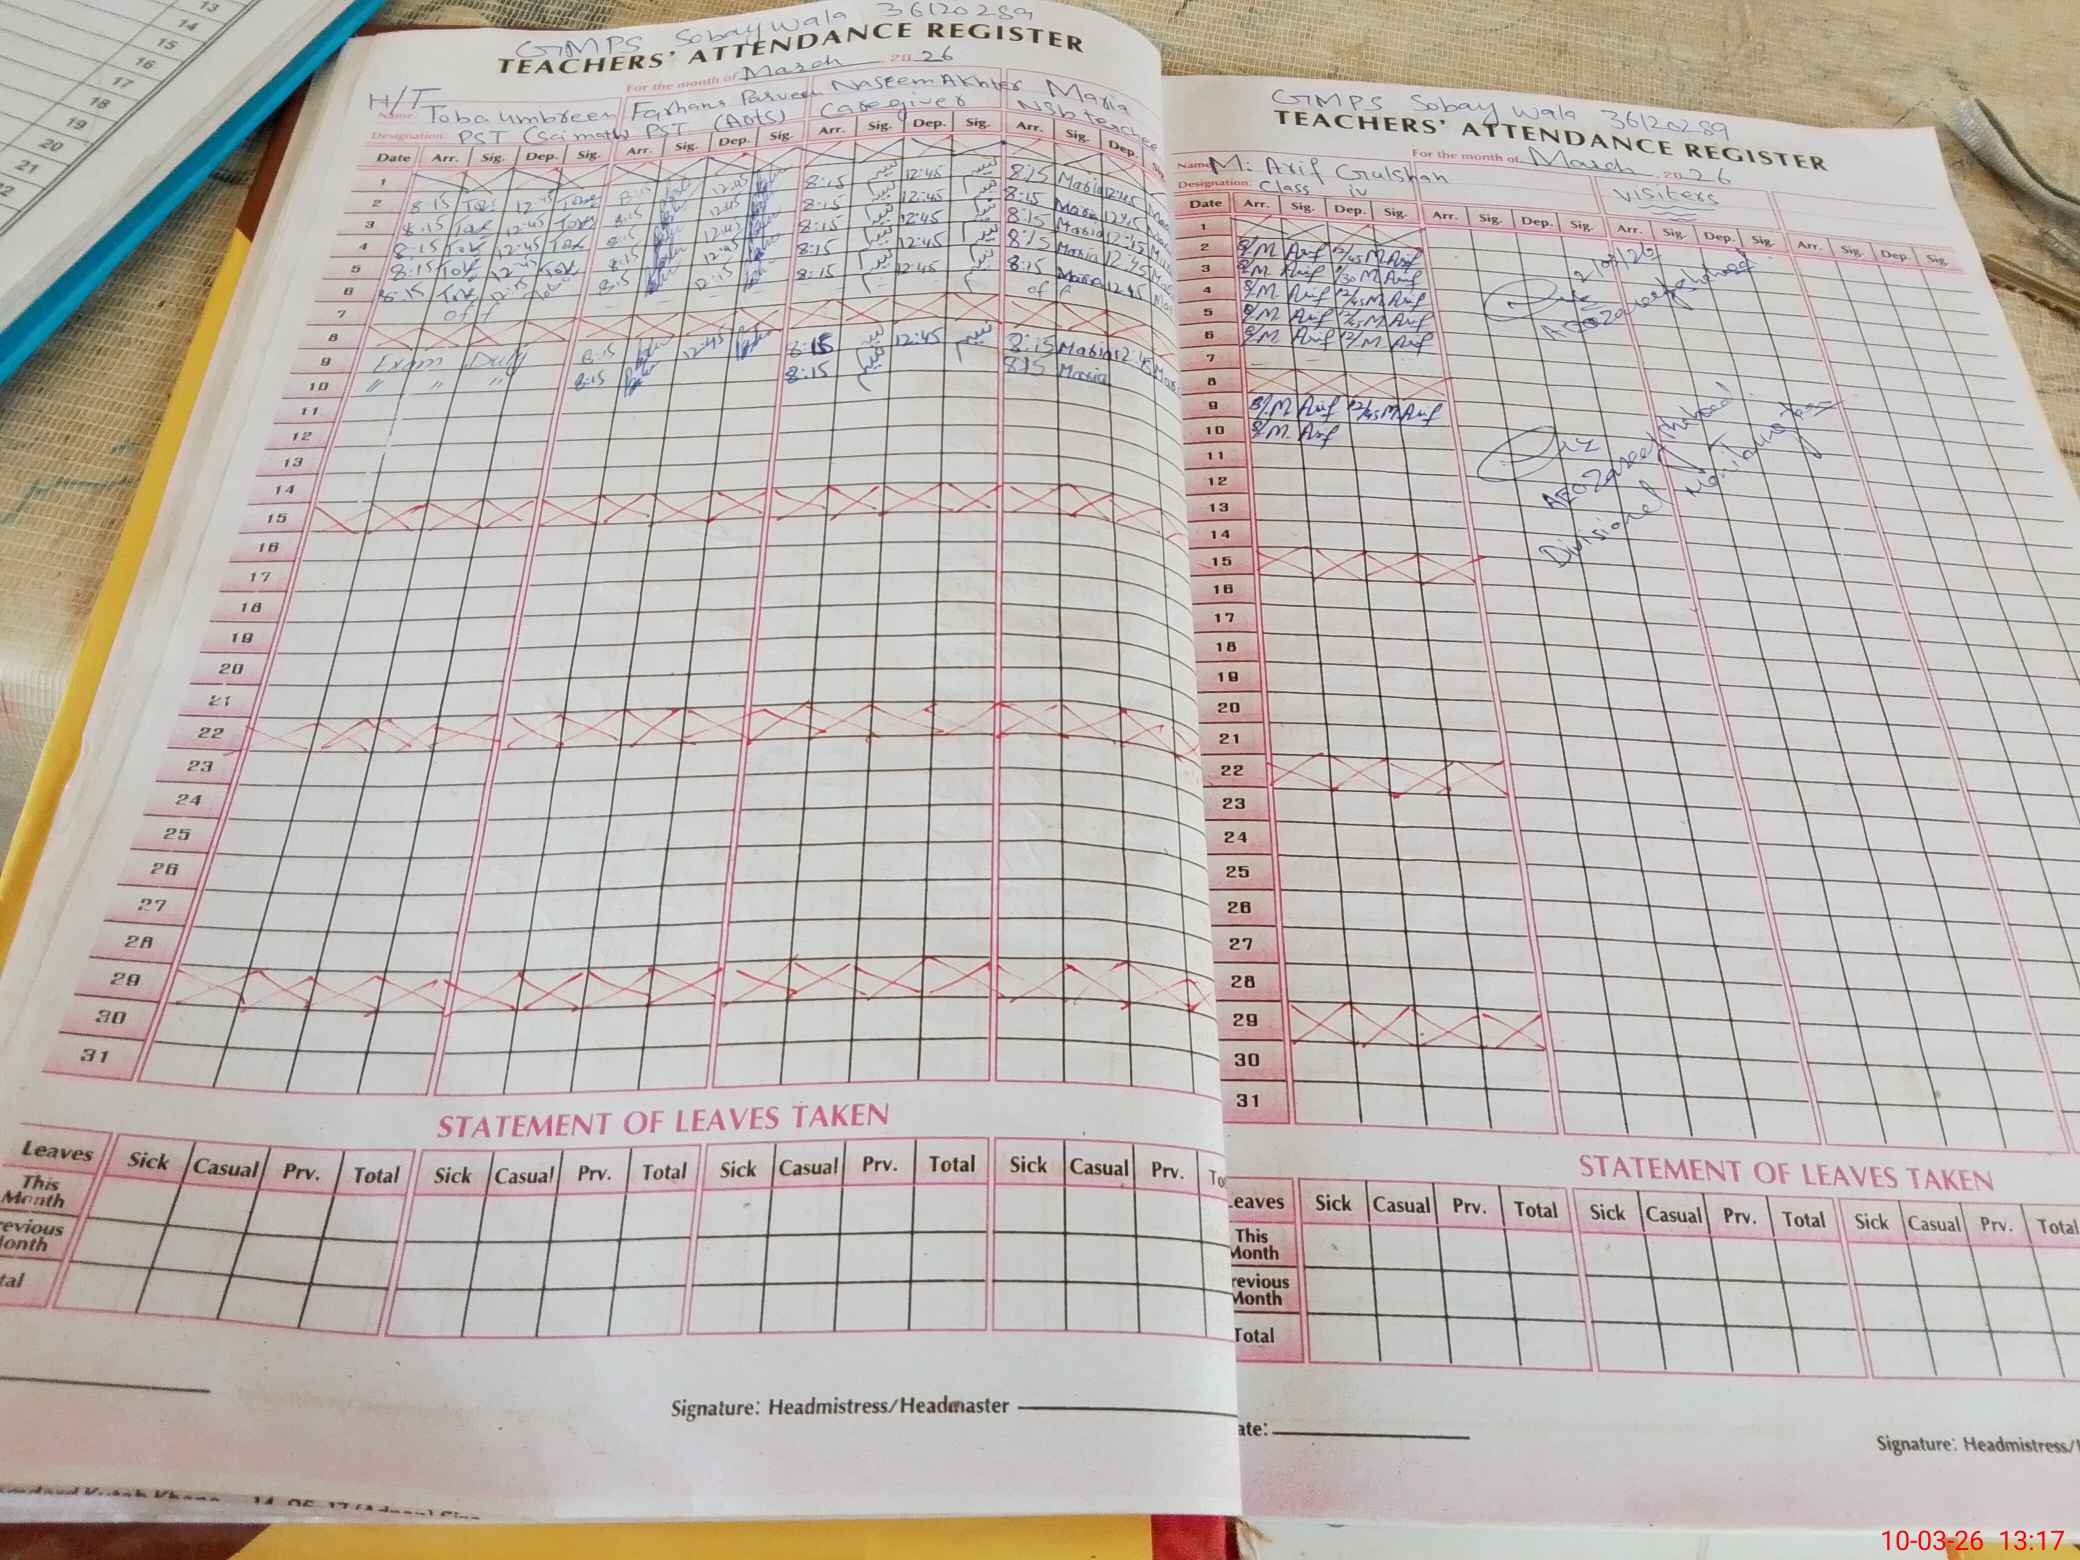 GMPS Sobaywala 36120289
TEACHERS' ATTENDANCE REGISTER
For the month of March 2026
H/T
Name: Toba umbreen Farhana Parveen Naseem Akhter Maria
Designation: PST (Sci math) PST (Arts) Caregiver NSb teacher
Date Arr. Sig. Dep. Sig. Arr. Sig. Dep. Sig. Arr. Sig. Dep. Sig. Arr. Sig. Dep.
1
2 8:15 12:45 8:15 12:45 8:15 نسیم 12:45 نسیم 8:15 Maria 12:45
3 8:15 12:45 8:15 12:45 8:15 نسیم 12:45 نسیم 8:15 Maria 12:45
4 8:15 12:45 8:15 12:45 8:15 نسیم 12:45 نسیم 8:15 Maria 12:45
5 8:15 12:45 8:15 12:45 8:15 نسیم 12:45 نسیم 8:15 Maria 12:45
6 8:15 12:15 8:15 12:15 8:15 نسیم 12:45 نسیم 8:15 Maria 12:45
7 off off
8
9 Exam Duty 8:15 12:45 8:15 نسیم 12:45 نسیم 8:15 Maria 12:45
10 " " " 8:15 8:15 نسیم 8:15 Maria
11
12
13
14
15
16
17
18
19
20
21
22
23
24
25
26
27
28
29
30
31
STATEMENT OF LEAVES TAKEN
Leaves Sick Casual Prv. Total Sick Casual Prv. Total Sick Casual Prv. Total Sick Casual Prv.
This Month
Previous Month
Total
Signature: Headmistress/Headmaster
GMPS Sobaywala 36120289
TEACHERS' ATTENDANCE REGISTER
For the month of March 2026
Name: M. Arif Gulshan
Designation: Class iv
Visiters
Date Arr. Sig. Dep. Sig. Arr. Sig. Dep. Sig. Arr. Sig. Dep. Sig. Arr. Sig. Dep. Sig.
1
2 8/ M. Arif 12/45 M. Arif
3 8/ M. Arif 1/30 M. Arif
4 8/ M. Arif 12/45 M. Arif
5 8/ M. Arif 12/45 M. Arif
6 8/ M. Arif 12/ M. Arif
7
8
9 8/ M. Arif 12/45 M. Arif
10 8/ M. Arif
11
12
13
14
15
16
17
18
19
20
21
22
23
24
25
26
27
28
29
30
31
AEO
AEO
Divisional Monitoring
STATEMENT OF LEAVES TAKEN
Leaves Sick Casual Prv. Total Sick Casual Prv. Total Sick Casual Prv. Total
This Month
Previous Month
Total
Date:
Signature: Headmistress/
10-03-26 13:17